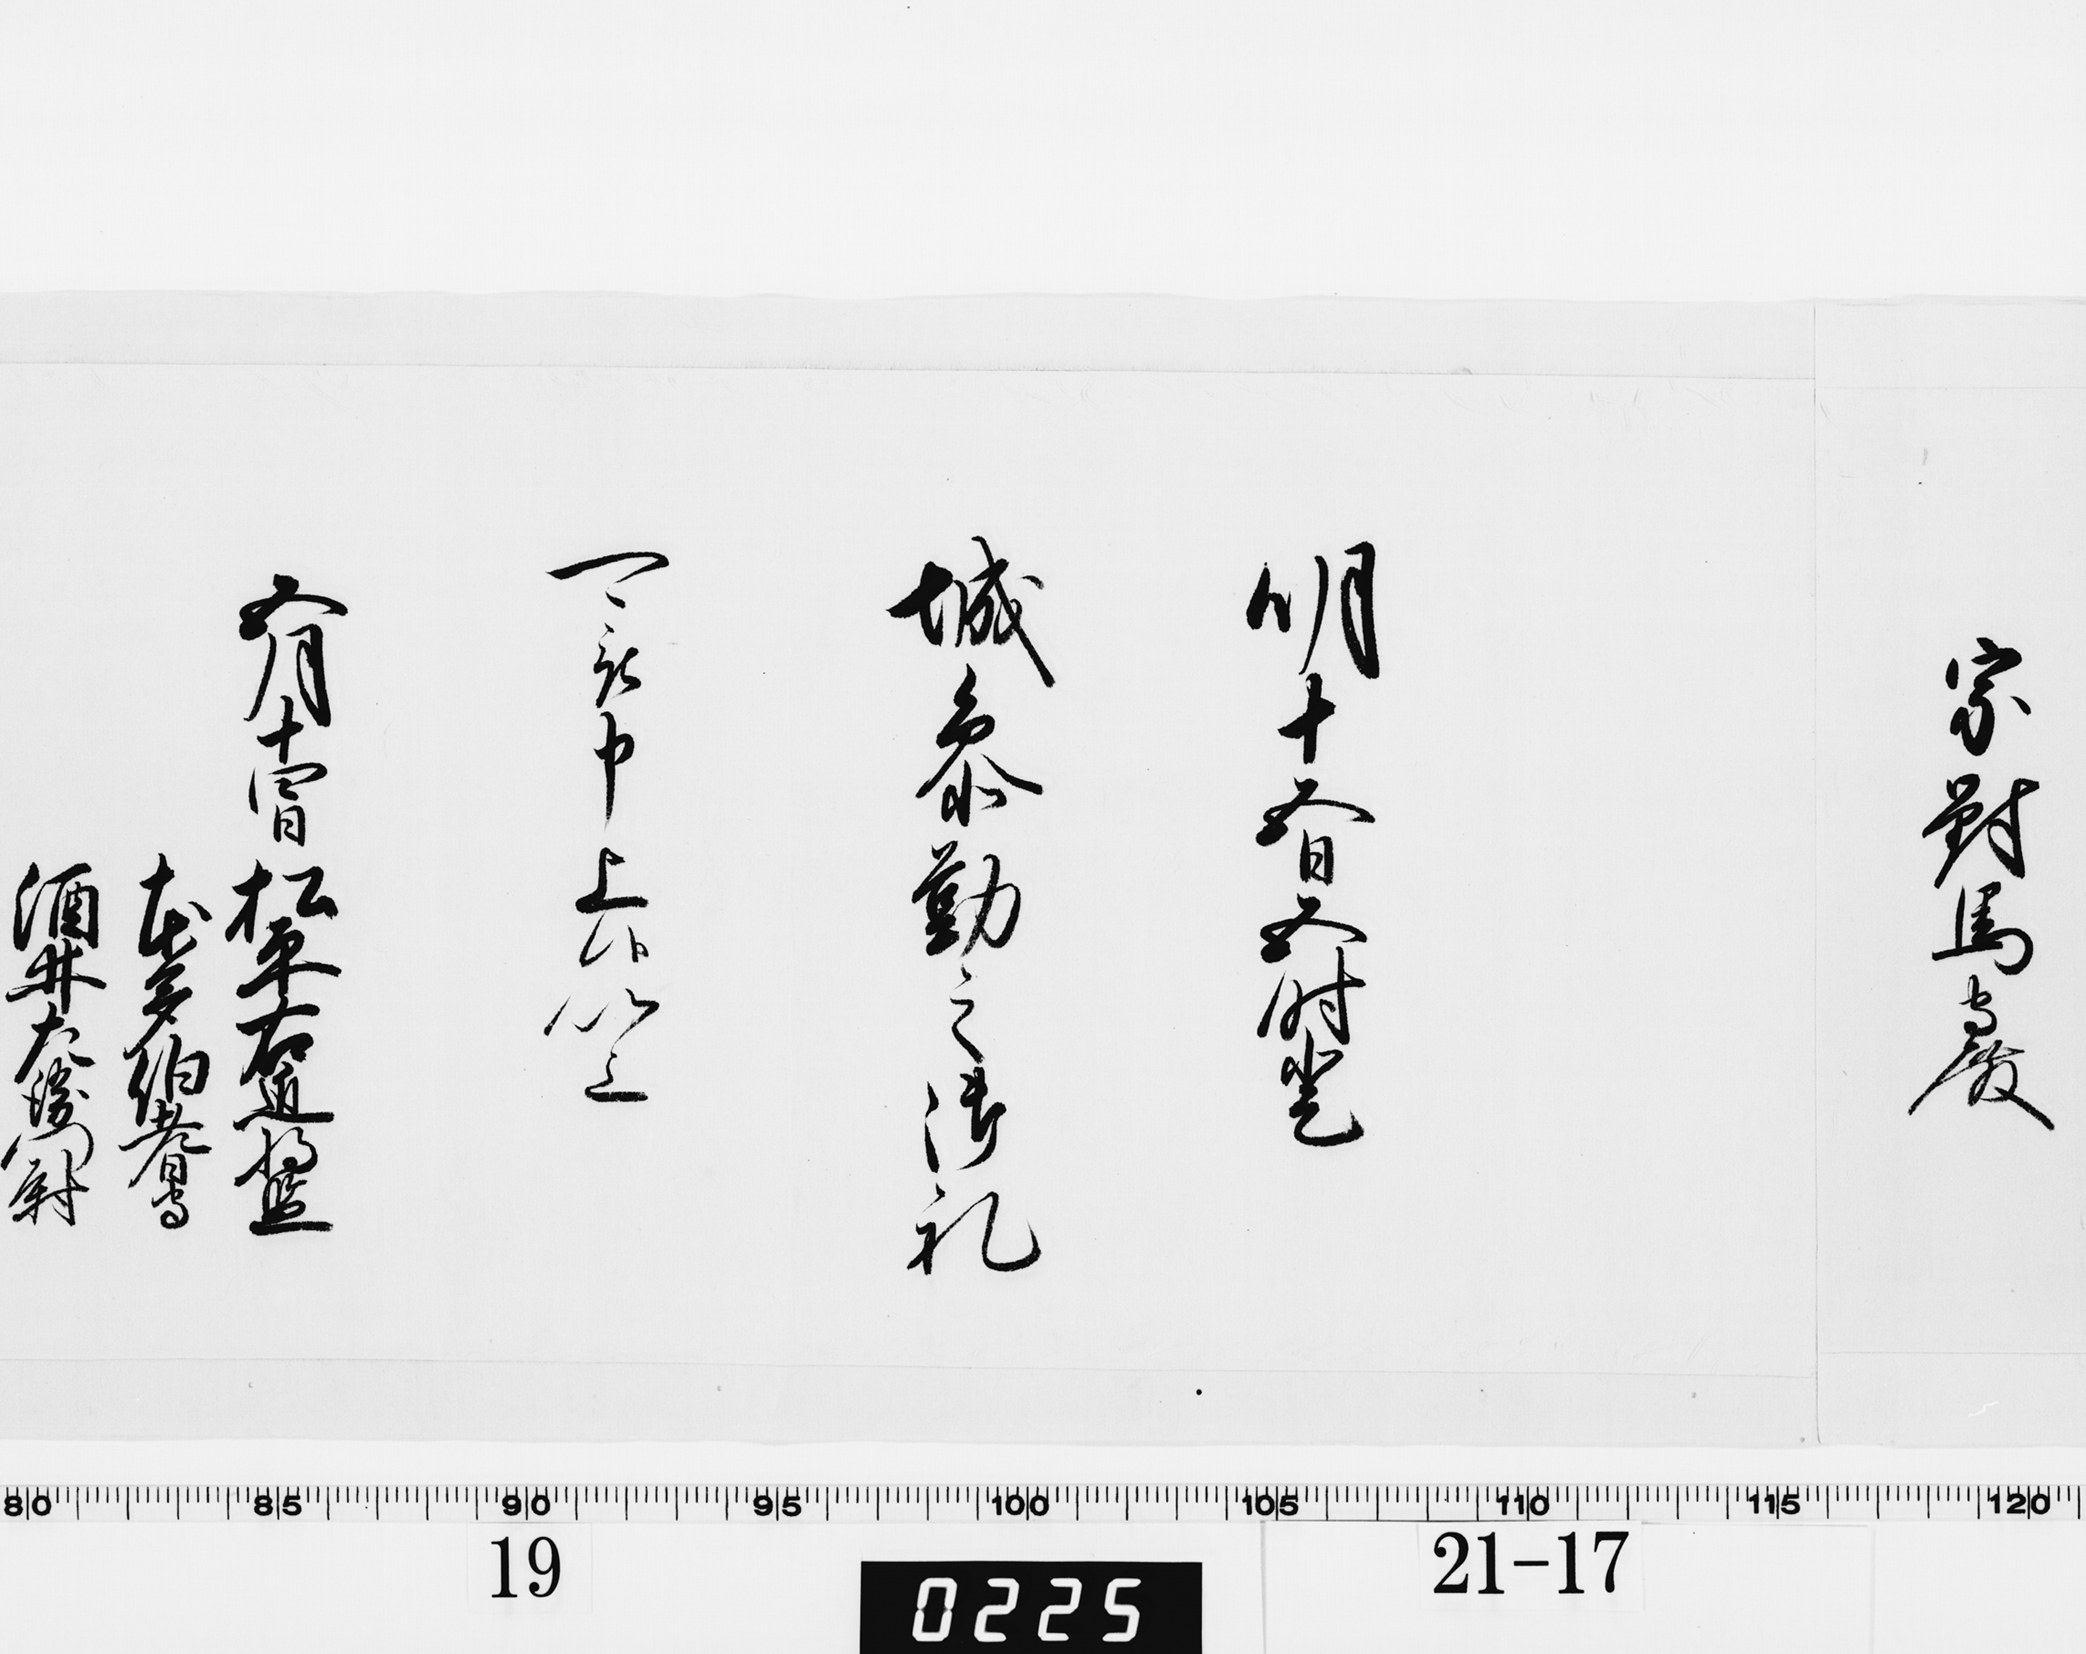 宗對馬守殿
明十五日五時登
城参勤之御礼
可被申上候以上
五月十四日
松平右近将監
本多伯耆守
酒井左衛門尉
80 85 90 95 100 105 110 115 120
19
0225
21-17